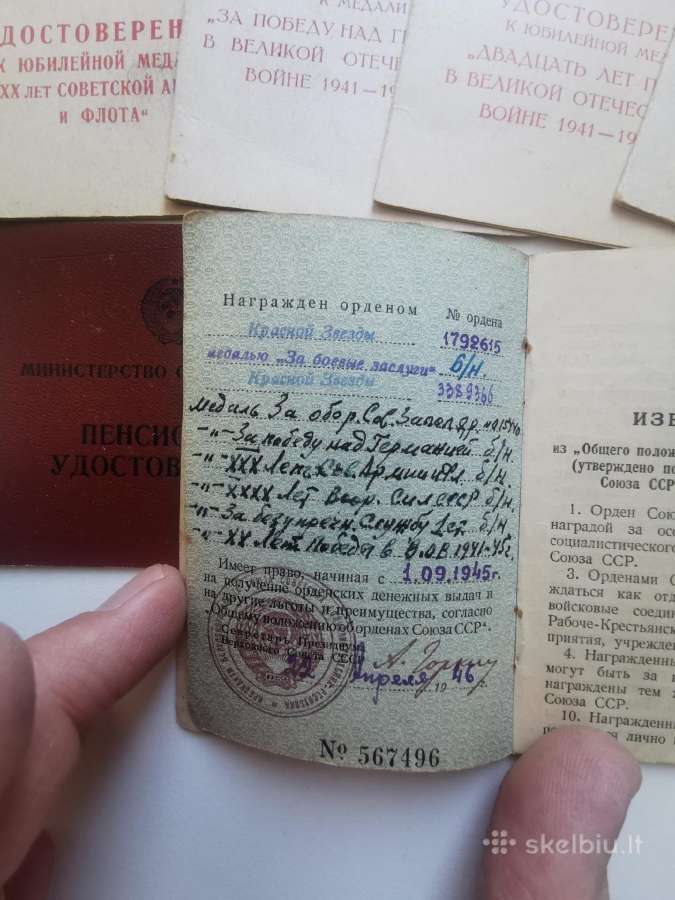 УДОСТОВЕРЕН
К ЮБИЛЕЙНОЙ МЕД
XX ЛЕТ СОВЕТСКОЙ А
и ФЛОТА"
К МЕДАЛИ
„ЗА ПОБЕДУ НАД Г
В ВЕЛИКОЙ ОТЕЧЕ
ВОЙНЕ 1941—1
УДОСТОВЕРЕ
К ЮБИЛЕЙНОЙ МЕ
„ДВАДЦАТЬ ЛЕТ П
В ВЕЛИКОЙ ОТЕЧЕС
ВОЙНЕ 1941—19
МИНИСТЕРСТВО О
ПЕНСИО
УДОСТОВЕ
Награжден орденом № ордена
Красной Звезды 1792615
медалью „За боевые заслуги" б/н.
Красной Звезды
Медаль За обор. Сов. Заполяр.
-"- За победу над Германией б/н.
-"- XXX Лет Сов. Армии б/н.
-"- XXXX Лет Воор. Сил СССР б/н.
-"- За безупречн. Службу б/н.
-"- XX Лет Победа в В.О.В 1941-45г.
Имеет право, начиная с 1.09.1945г.
на получение орденских денежных выдач и
на другие льготы и преимущества, согласно
„Общему положению об орденах Союза ССР".
Секретарь Президиума
Верховного Совета СССР
22 апреля 1946 г.
№ 567496
ИЗВ
из „Общего полож
(утверждено по
Союза ССР
1. Орден Сою
наградой за осо
социалистического
Союза ССР.
3. Орденами С
ждаться как отд
войсковые соедин
Рабоче-Крестьянск
приятия, учрежден
4. Награжденны
могут быть за н
награждены тем ж
Союза ССР.
10. Награжденны
лично
skelbiu.lt